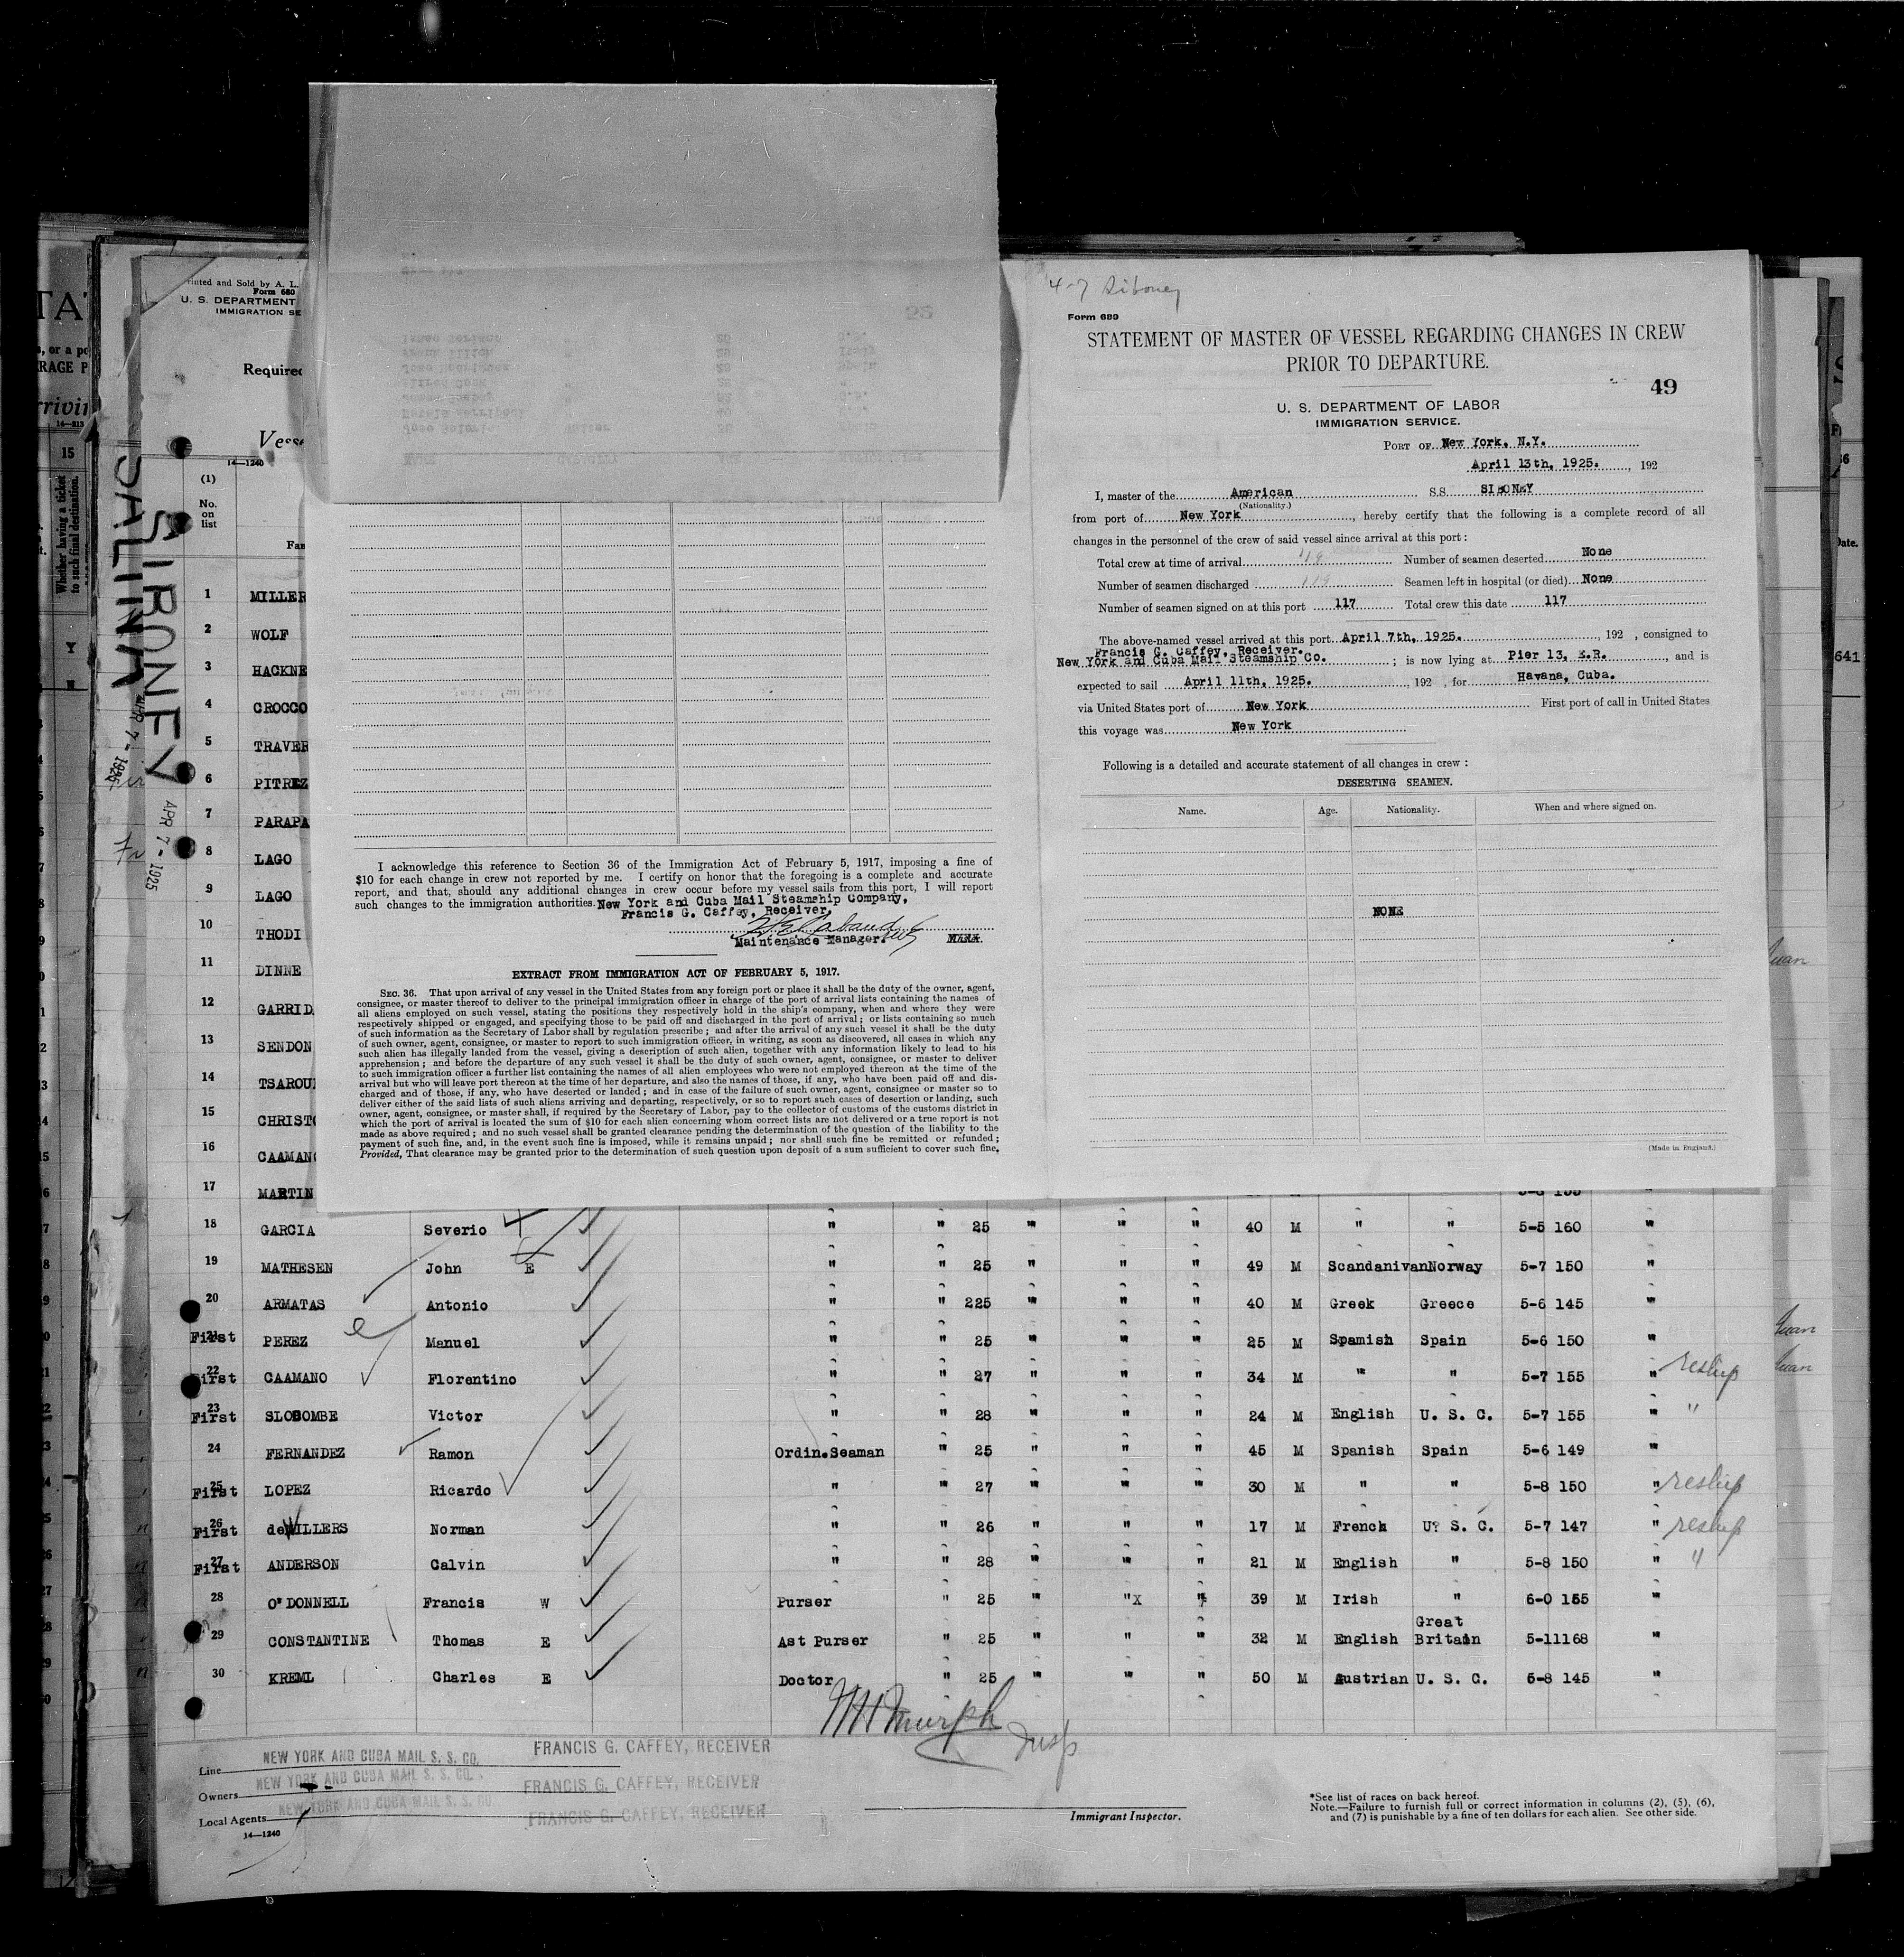 4-7 Siboney
Form 689
STATEMENT OF MASTER OF VESSEL REGARDING CHANGES IN CREW
PRIOR TO DEPARTURE.
49
U. S. DEPARTMENT OF LABOR
IMMIGRATION SERVICE.
PORT OF New York, N.Y.
April 13th, 1925. , 192
I, master of the American S.S. SIBONEY
(Nationality.)
from port of New York , hereby certify that the following is a complete record of all
changes in the personnel of the crew of said vessel since arrival at this port :
Total crew at time of arrival Number of seamen deserted None
Number of seamen discharged Seamen left in hospital (or died) None
Number of seamen signed on at this port 117 Total crew this date 117
The above-named vessel arrived at this port April 7th, 1925. , 192 , consigned to
Francis G. Caffey, Receiver.
New York and Cuba Mail Steamship Co. ; is now lying at Pier 13, E.R. , and is
expected to sail April 11th, 1925. , 192 , for Havana, Cuba.
via United States port of New York First port of call in United States
this voyage was New York
Following is a detailed and accurate statement of all changes in crew :
DESERTING SEAMEN.
Name. Age. Nationality. When and where signed on.
NONE
(Made in England.)
I acknowledge this reference to Section 36 of the Immigration Act of February 5, 1917, imposing a fine of
$10 for each change in crew not reported by me. I certify on honor that the foregoing is a complete and accurate
report, and that, should any additional changes in crew occur before my vessel sails from this port, I will report
such changes to the immigration authorities. New York and Cuba Mail Steamship Company,
Francis G. Caffey, Receiver,
Maintenance Manager.
EXTRACT FROM IMMIGRATION ACT OF FEBRUARY 5, 1917.
SEC. 36. That upon arrival of any vessel in the United States from any foreign port or place it shall be the duty of the owner, agent,
consignee, or master thereof to deliver to the principal immigration officer in charge of the port of arrival lists containing the names of
all aliens employed on such vessel, stating the positions they respectively hold in the ship's company, when and where they were
respectively shipped or engaged, and specifying those to be paid off and discharged in the port of arrival ; or lists containing so much
of such information as the Secretary of Labor shall by regulation prescribe ; and after the arrival of any such vessel it shall be the duty
of such owner, agent, consignee, or master to report to such immigration officer, in writing, as soon as discovered, all cases in which any
such alien has illegally landed from the vessel, giving a description of such alien, together with any information likely to lead to his
apprehension ; and before the departure of any such vessel it shall be the duty of such owner, agent, consignee, or master to deliver
to such immigration officer a further list containing the names of all alien employees who were not employed thereon at the time of the
arrival but who will leave port thereon at the time of her departure, and also the names of those, if any, who have been paid off and dis-
charged and of those, if any, who have deserted or landed ; and in case of the failure of such owner, agent, consignee or master so to
deliver either of the said lists of such aliens arriving and departing, respectively, or so to report such cases of desertion or landing, such
owner, agent, consignee, or master shall, if required by the Secretary of Labor, pay to the collector of customs of the customs district in
which the port of arrival is located the sum of $10 for each alien concerning whom correct lists are not delivered or a true report is not
made as above required ; and no such vessel shall be granted clearance pending the determination of the question of the liability to the
payment of such fine, and, in the event such fine is imposed, while it remains unpaid ; nor shall such fine be remitted or refunded ;
Provided, That clearance may be granted prior to the determination of such question upon deposit of a sum sufficient to cover such fine,
Printed and Sold by A. L.
Form 680
U. S. DEPARTMENT
IMMIGRATION SE
Required
Vesse
14—1240
SALINA
SIBONEY
APR 7 - 1925
APR 7 - 1925
(1)
No.
on
list
Fam
1 MILLER
2 WOLF
3 HACKNE
4 CROCCO
5 TRAVER
6 PITREZ
7 PARAPA
8 LAGO
9 LAGO
10 THODI
11 DINNE
12 GARRID
13 SENDON
14 TSAROU
15 CHRISTO
16 CAAMANO
17 MARTIN
18 GARCIA Severio " " 25 " " " 40 M " " 5-5 160 "
19 MATHESEN John E " " 25 " " " 49 M Scandanivan Norway 5-7 150 "
20 ARMATAS Antonio " " 225 " " " 40 M Greek Greece 5-6 145 "
21 First PEREZ Manuel " " 25 " " " 25 M Spamish Spain 5-6 150 "
22 First CAAMANO Florentino " " 27 " " " 34 M " " 5-7 155 " reship
23 First SLOCOMBE Victor " " 28 " " " 24 M English U. S. C. 5-7 155 " "
24 FERNANDEZ Ramon Ordin.Seaman " 25 " " " 45 M Spanish Spain 5-6 149 "
25 First LOPEZ Ricardo " " 27 " " " 30 M " " 5-8 150 " reship
26 First deWILLERS Norman " " 26 " " " 17 M French U? S. C. 5-7 147 " reship
27 First ANDERSON Calvin " " 28 " " " 21 M English " 5-8 150 " "
28 O'DONNELL Francis W Purser " 25 " "X " 39 M Irish " 6-0 155 "
29 CONSTANTINE Thomas E Ast Purser " 25 " " " 32 M English Great Britain 5-11 168 "
30 KREML Charles E Doctor " 25 " " " 50 M Austrian U. S. C. 5-8 145 "
Insp
Line NEW YORK AND CUBA MAIL S. S. CO. FRANCIS G. CAFFEY, RECEIVER
Owners NEW YORK AND CUBA MAIL S. S. CO. FRANCIS G. CAFFEY, RECEIVER
Local Agents NEW YORK AND CUBA MAIL S. S. CO. FRANCIS G. CAFFEY, RECEIVER
14—1240
Immigrant Inspector.
*See list of races on back hereof.
Note.—Failure to furnish full or correct information in columns (2), (5), (6),
and (7) is punishable by a fine of ten dollars for each alien. See other side.